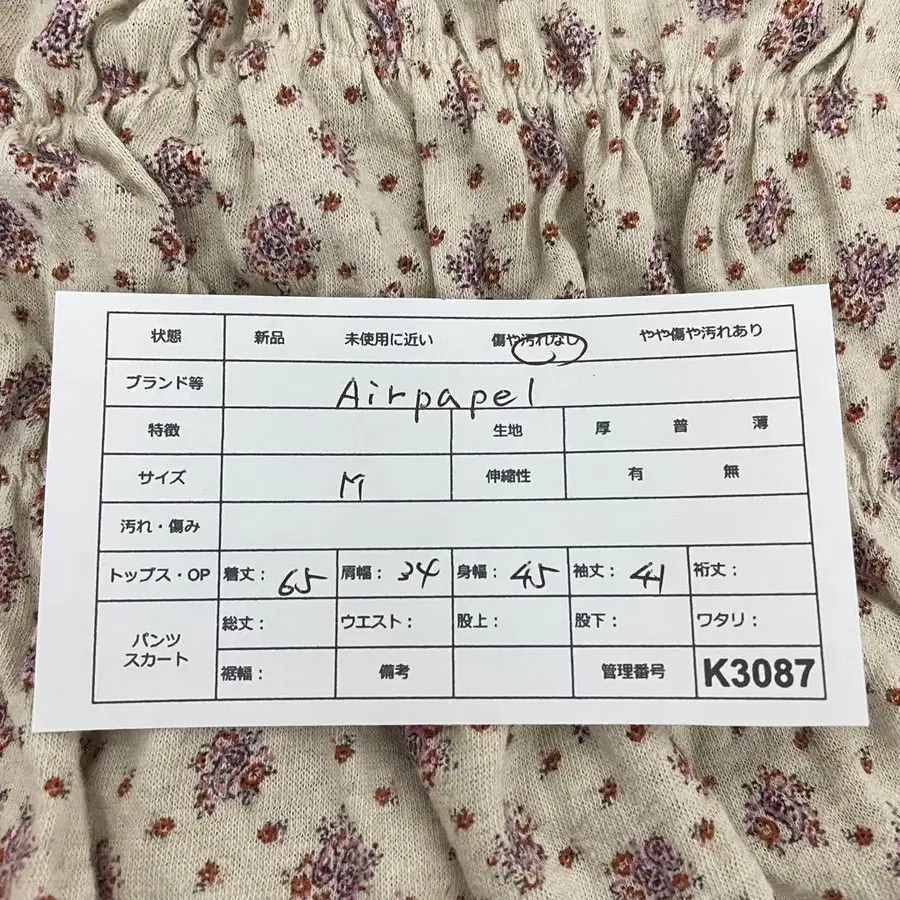 状態 新品 未使用に近い 傷や汚れなし やや傷や汚れあり
ブランド等 Airpapel
特徴 生地 厚 普 薄
サイズ M 伸縮性 有 無
汚れ・傷み
トップス・OP 着丈： 65 肩幅： 34 身幅： 45 袖丈： 41 裄丈；
パンツ
スカート
総丈： ウエスト： 股上： 股下： ワタリ：
裾幅： 備考 管理番号 K3087